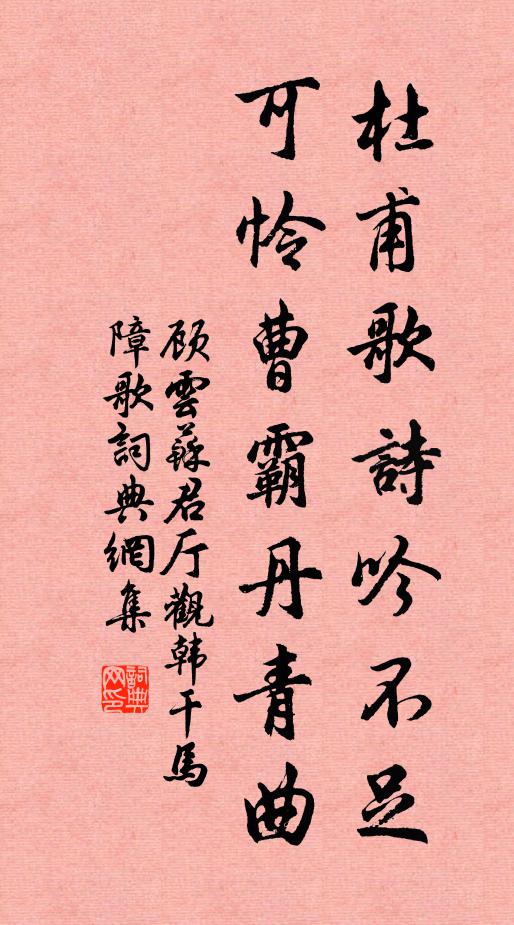 杜甫歌詩吟不足
可怜曹霸丹青曲
顾雲蘇君厅觀韩干馬
障歌詞典網集
詞典网印